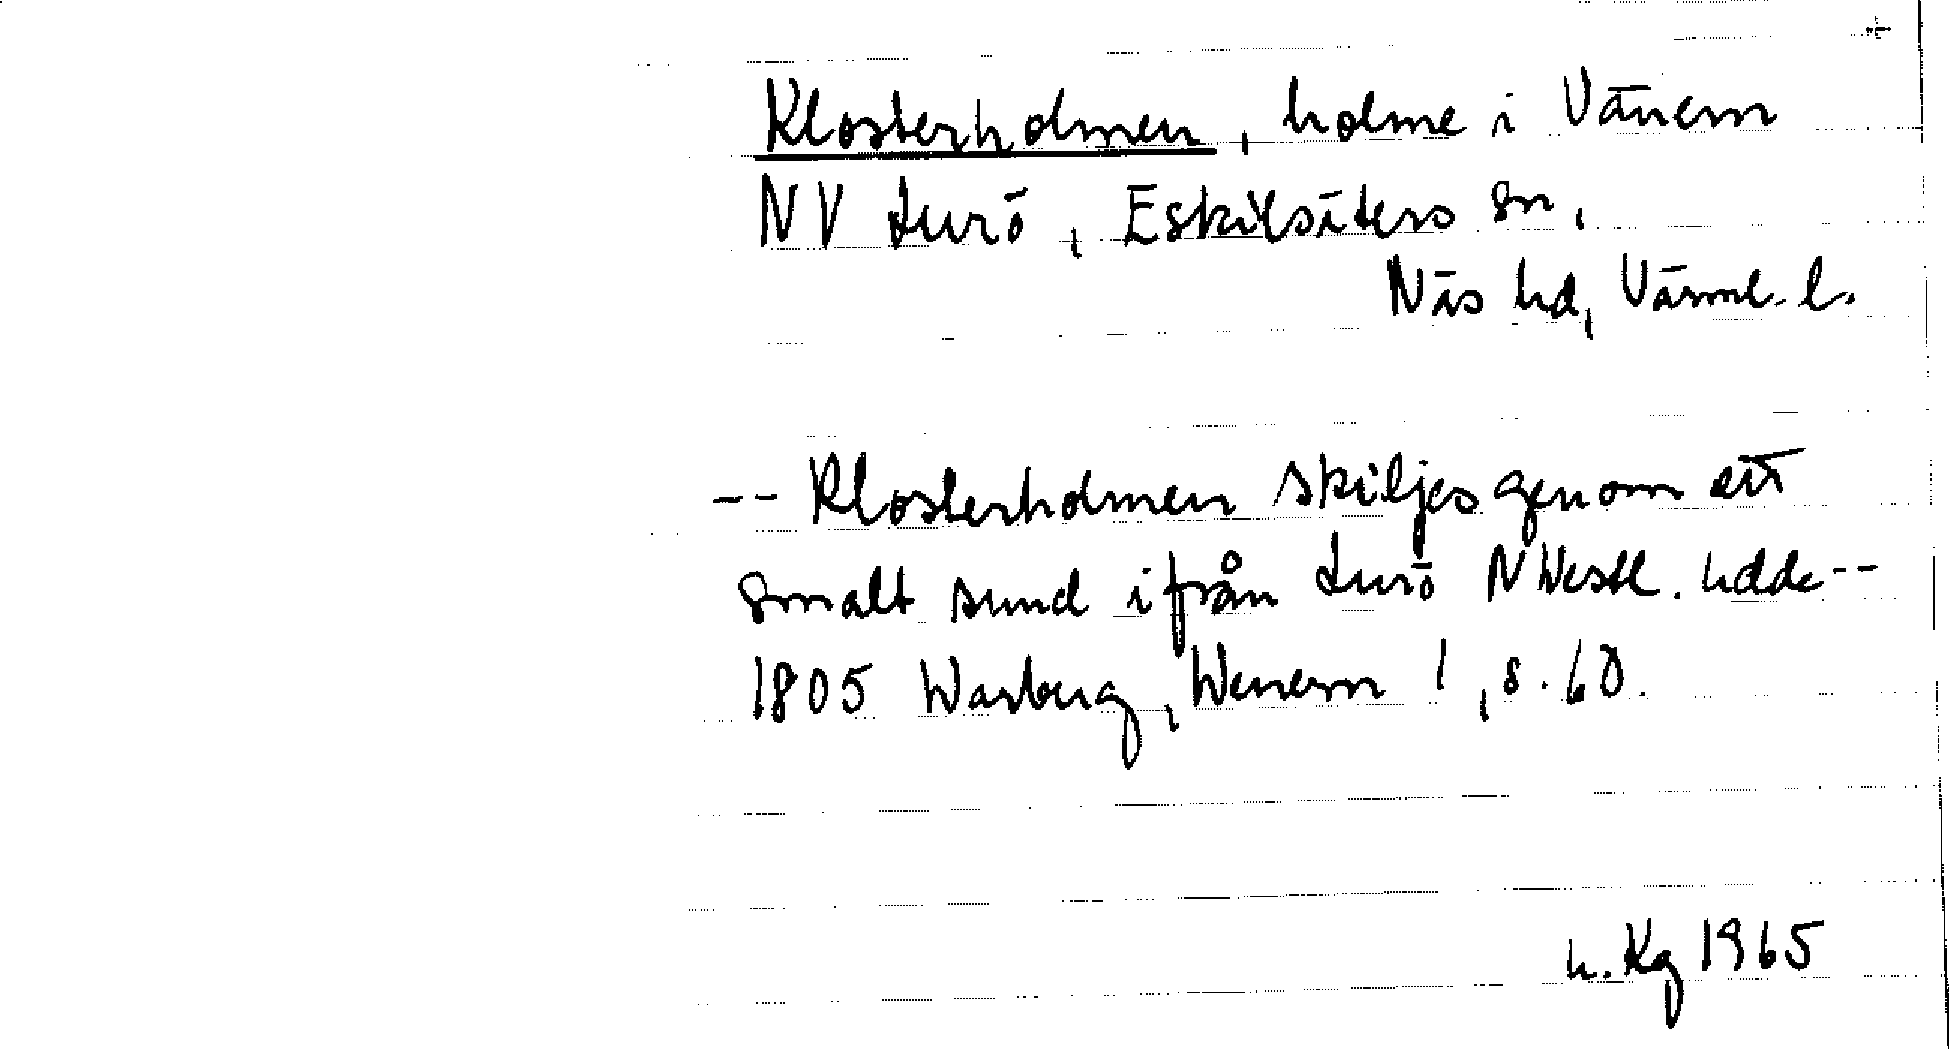 Klosterholmen, holme i Vänern
NV Lurö, Eskilsäters sn,
Näs hd, Värml. l.
-- Klosterholmen skiljes genom ett
smalt sund ifrån Lurö NWestl. udde --
1805 Warberg, Wenern 1, s. 60.
Kg 1965